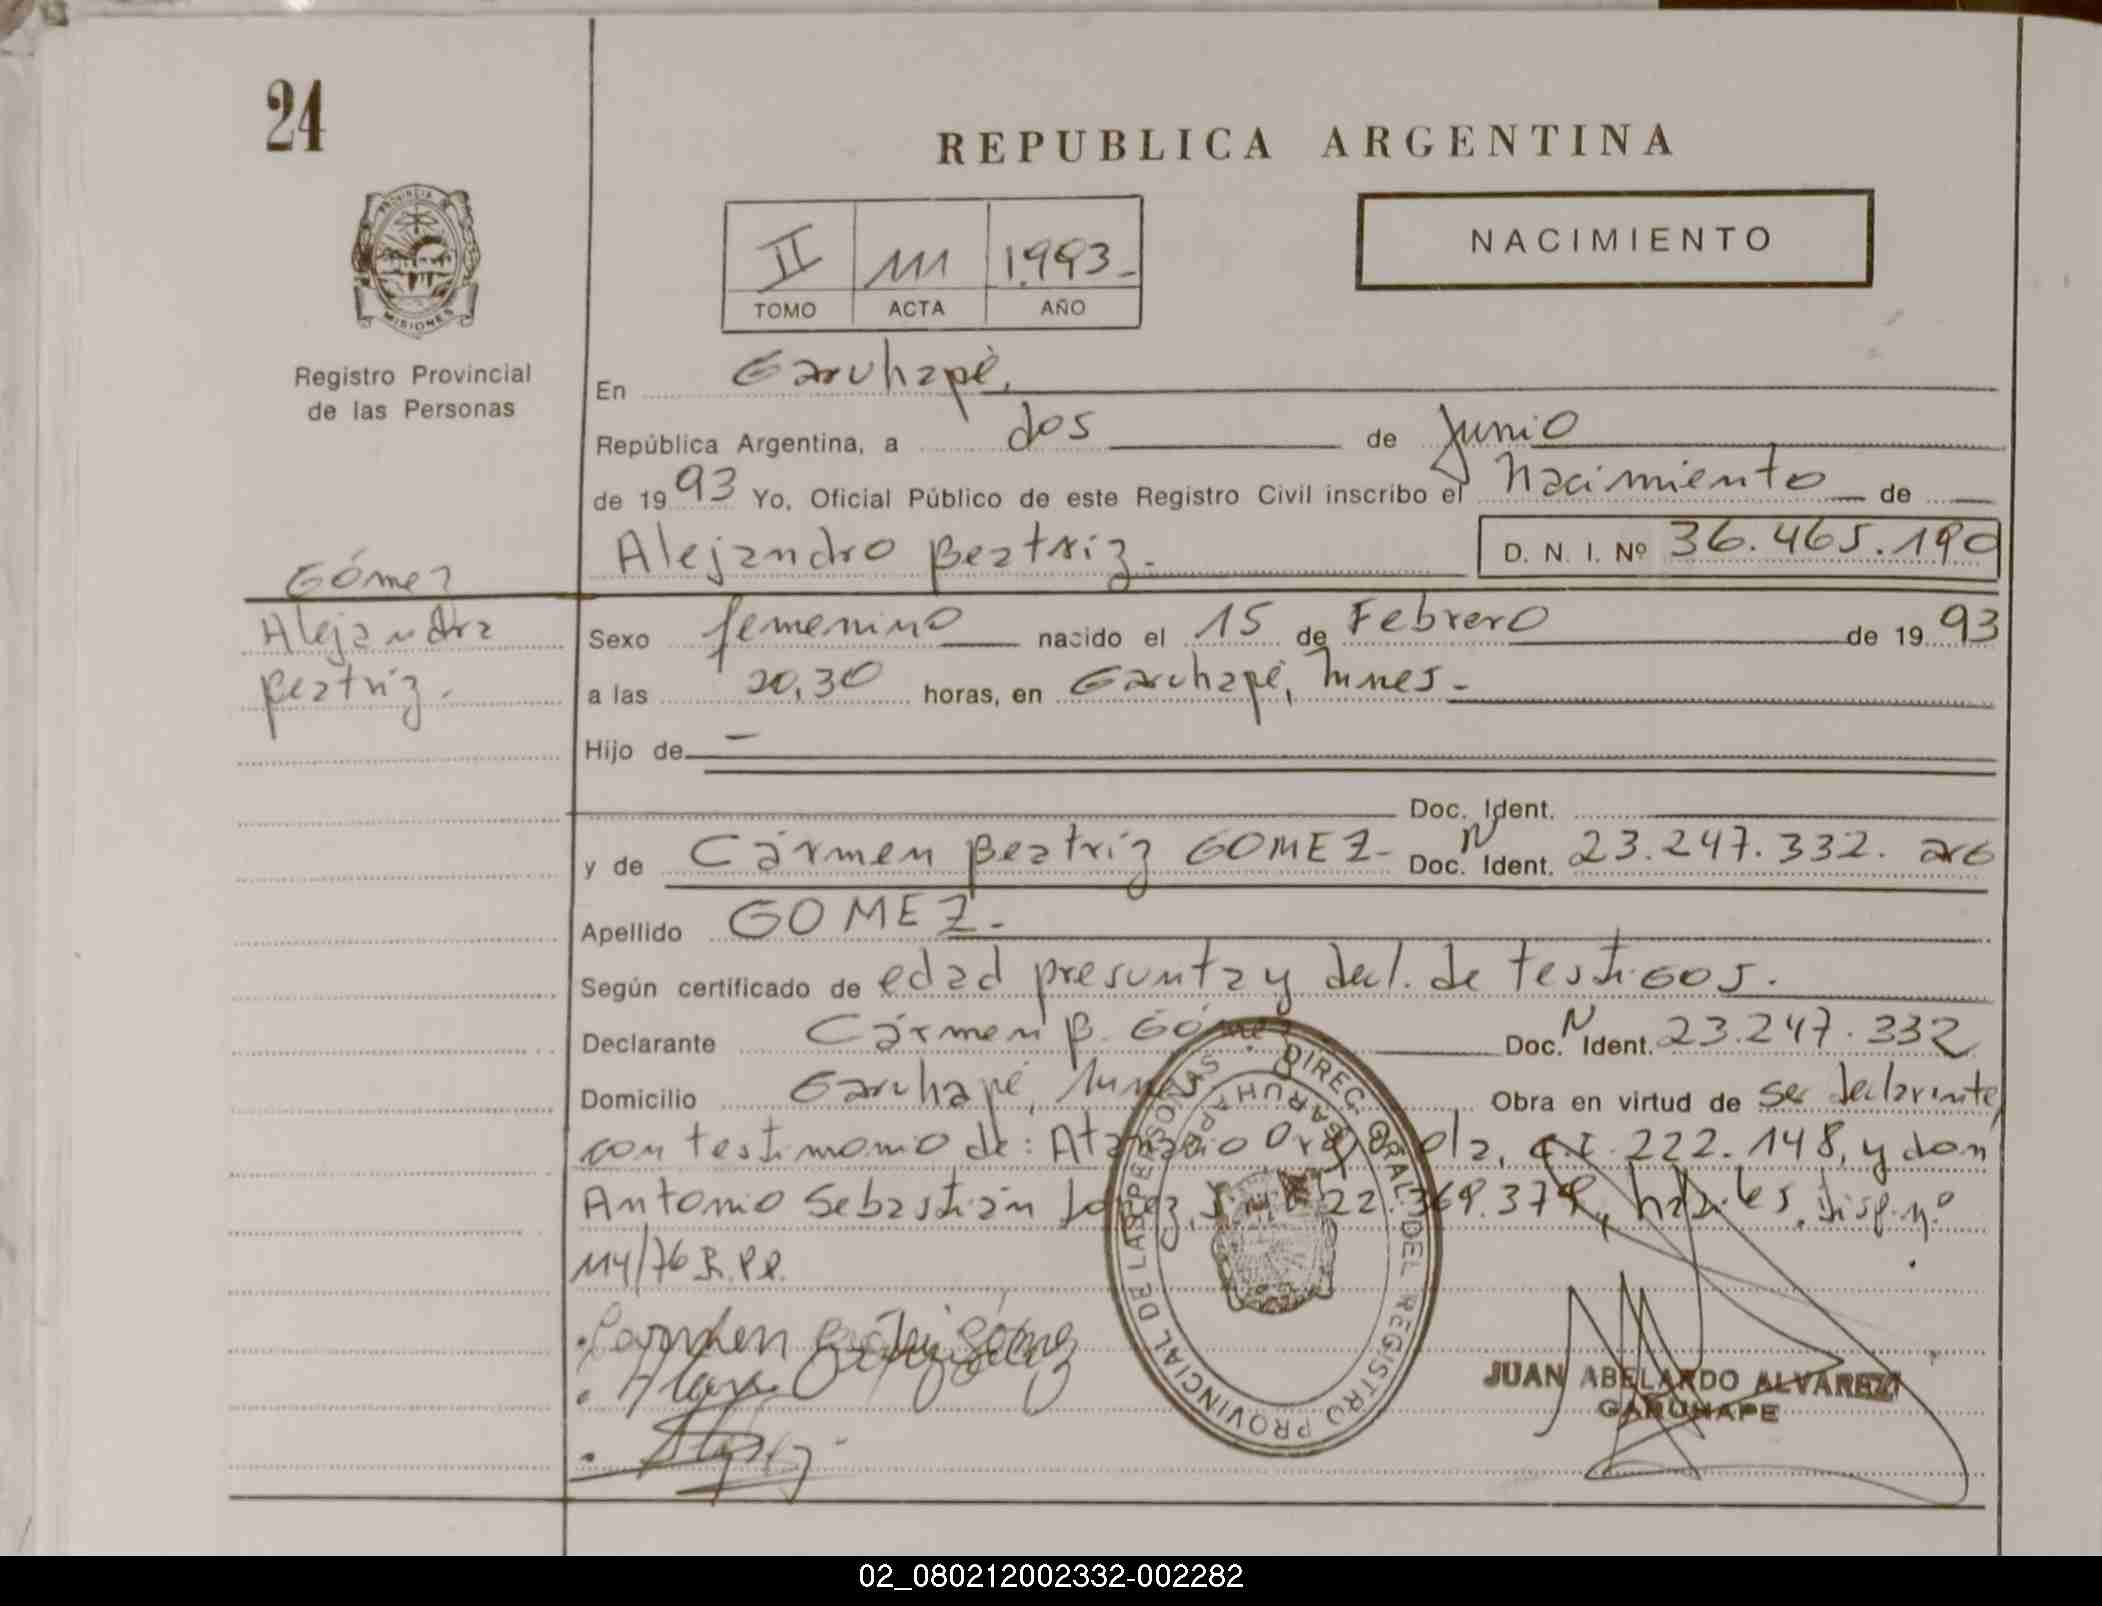 24
REPUBLICA ARGENTINA
PROVINCIA DE
MISIONES
Registro Provincial
de las Personas
II 111 1.993-
TOMO ACTA AÑO
NACIMIENTO
En Garuhapé,
República Argentina, a dos de Junio
de 1993 Yo, Oficial Público de este Registro Civil inscribo el Nacimiento de
Alejandro Beatriz.- D. N. I. Nº 36.465.190
Gómez
Alejandra
Beatriz.
Sexo femenino nacido el 15 de Febrero de 1993
a las 20,30 horas, en Garuhapé, Mnes.-
Hijo de -
Doc. Ident.
y de Cármen Beatriz GOMEZ- Doc. N Ident. 23.247.332. arg
Apellido GOMEZ.-
Según certificado de edad presunta y decl. de testigos.
Declarante Cármen B. Gómez Doc. N Ident. 23.247.332
Domicilio Garuhapé, Mnes Obra en virtud de ser declarante,
con testimonio de: 222.148, y don
Antonio Sebastián López, 22.369.379, hábiles, Disp. nº
114/76 R.P.P.
Carmen Beatriz Gómez
DIREC. GRAL. DEL REGISTRO PROVINCIAL DE LAS PERSONAS
GARUHAPE
JUAN ABELARDO ALVAREZ
GARUHAPE
02_080212002332-002282